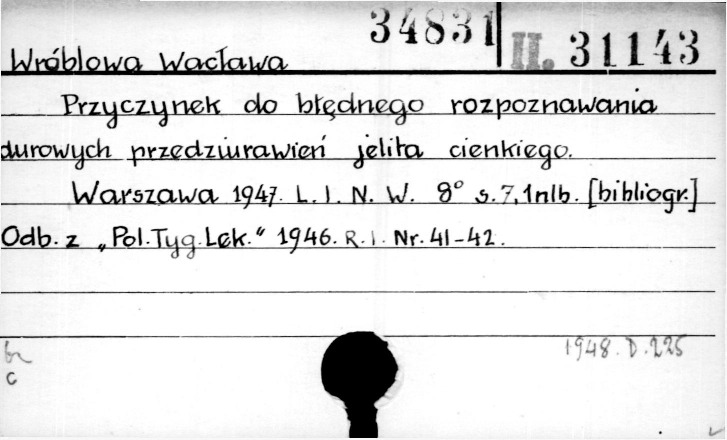 34831
II. 31143
Wróblowa Wacława
Przyczynek do błędnego rozpoznawania
durowych przedziurawień jelita cienkiego.
Warszawa 1947. L. I. N. W. 8° s. 7, 1 nlb. [bibliogr.]
Odb. z „Pol. Tyg. Lek." 1946. R. I. Nr. 41-42.
1948. D. 225
c